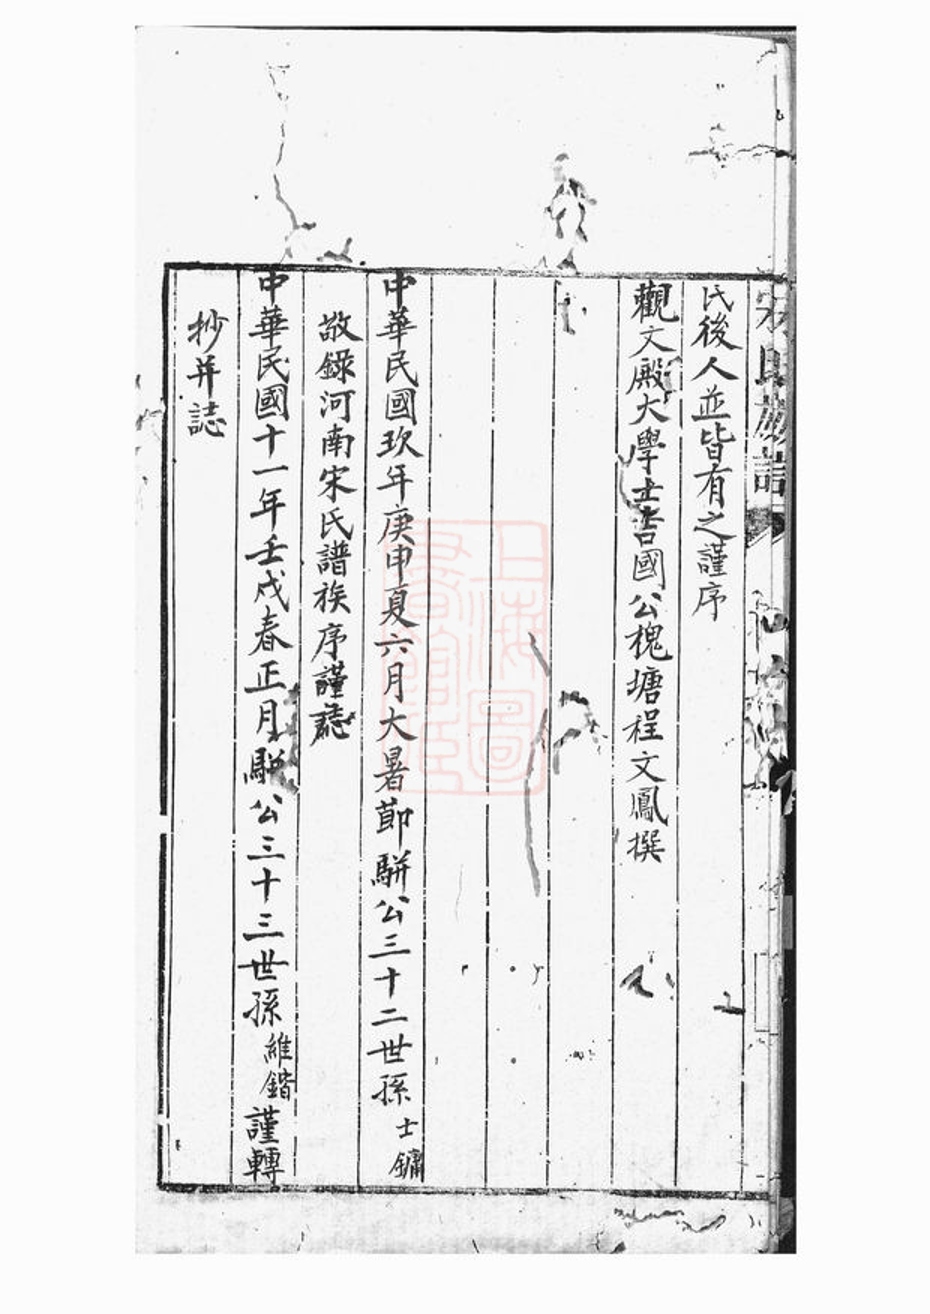 氏後人並皆有之謹序
觀文殿大學士吉國公槐塘程文鳳撰
中華民國玖年庚申夏六月大暑節駢公三十二世孫士鏞
敬錄河南宋氏譜族序謹誌
中華民國十一年壬戌春正月駢公三十三世孫維鍇謹轉
抄并誌
上海圖書館藏